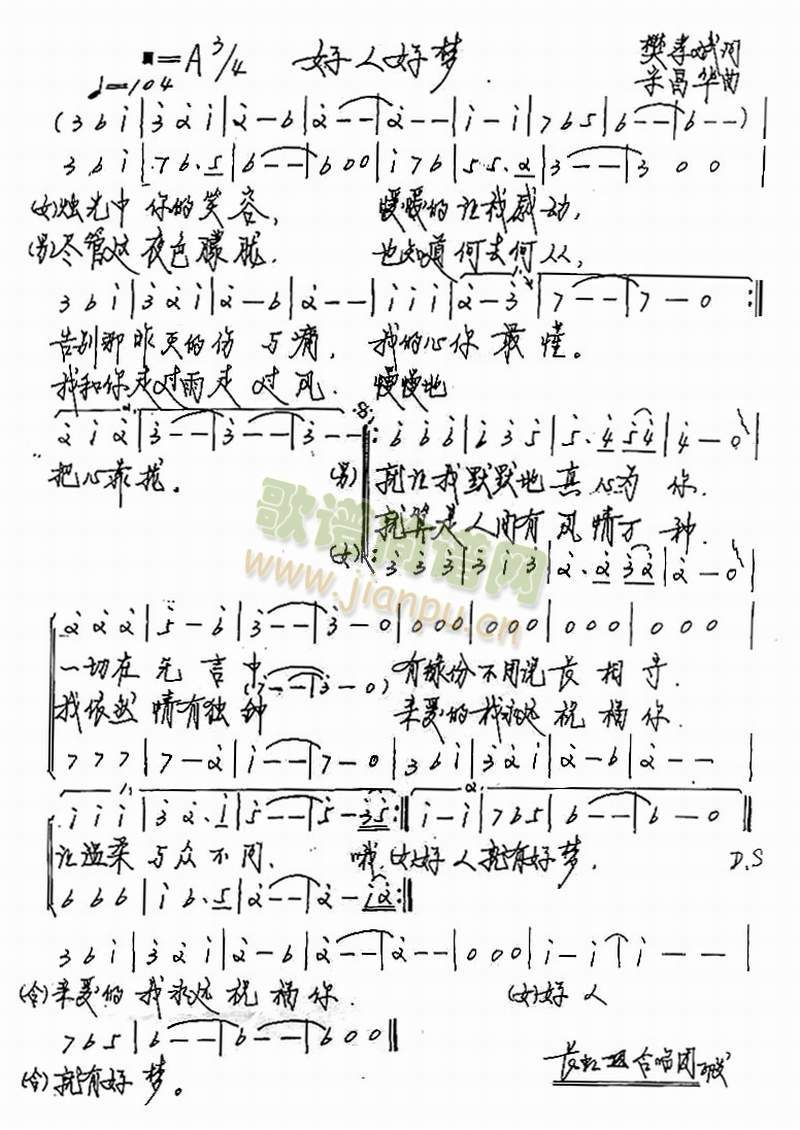 1=A 3/4 好人好梦 樊孝斌词
♩=104 宋昌华曲
(3 6 i | 3 2 i | 2 - 6 | 2 - - | 2 - - | i - i | 7 6 5 | 6 - - | 6 - -) |
3 6 i | 7 6. 5 | 6 - - | 6 0 0 | i 7 6 | 5 5. 2 | 3 - - | 3 0 0 |
(女)烛光中 你的笑容, 暖暖的让我感动,
(男)尽管这夜色朦胧. 也知道何去何从,
3 6 i | 3 2 i | 2 - 6 | 2 - - | i i i | 2 - 3 | 7 - - | 7 - 0 :||
告别那昨天的伤与痛, 我的心你最懂。
我和你走过雨走过风. 慢慢地
2 i 2 | 3 - - | 3 - - | 3 - - ||: 6 6 6 | 6 3 5 | 5. 4 5 4 | 4 - 0 |
把心靠拢。 (男) 就让我默默地真心为你.
就算是人间有风情万种.
(女) : 3 3 3 | 3 i 3 | 2. 2 3 2 | 2 - 0 |
歌谱简谱网
www.jianpu.cn
2 2 2 | 5 - 6 | 3 - - | 3 - 0 | 0 0 0 | 0 0 0 | 0 0 0 | 0 0 0 |
一切在无言中 (7 - - | 3 - 0) 有缘份不用说长相守.
我依然情有独钟 亲爱的我永远祝福你.
7 7 7 | 7 - 2 | i - - | 7 - 0 | 3 6 i | 3 2 i | 2 - 6 | 2 - - |
i i i | 3 2. i | 5 - - | 5 - 3 5 :|| i - i | 7 6 5 | 6 - - | 6 - 0 ||
让温柔与众不同. 哦, (女)好人就有好梦. D.S
6 6 6 | i 6. 5 | 2 - - | 2 - i 2 :||
3 6 i | 3 2 i | 2 - 6 | 2 - - | 2 - - | 0 0 0 | i - i | i - - |
(合)亲爱的我永远祝福你. (女)好人
7 6 5 | 6 - - | 6 - - | 6 0 0 ||
(合)就有好梦。 合唱团